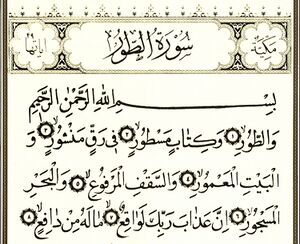 مكية سورة الطور آياتها ٤٩
بِسْمِ اللَّهِ الرَّحْمَٰنِ الرَّحِيمِ
وَالطُّورِ ١ وَكِتَابٍ مَسْطُورٍ ٢ فِي رَقٍّ مَنْشُورٍ ٣ وَ
الْبَيْتِ الْمَعْمُورِ ٤ وَالسَّقْفِ الْمَرْفُوعِ ٥ وَالْبَحْرِ
الْمَسْجُورِ ٦ إِنَّ عَذَابَ رَبِّكَ لَوَاقِعٌ ٧ مَا لَهُ مِنْ دَافِعٍ ٨